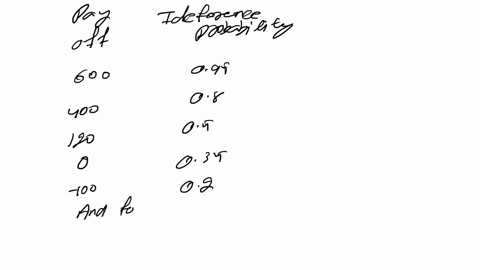 Pay off Ideference probability
600 0.95
400 0.8
120 0.5
0 0.35
-100 0.2
And fo